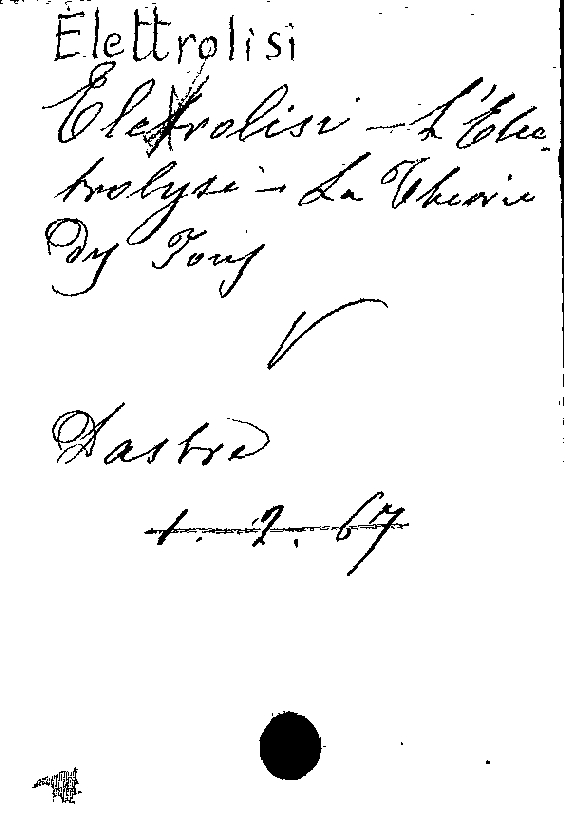 Elettrolisi
Elettrolisi - L'Elec-
trolyse - La Théorie
Dy Jons
V
Dastre
1. 2. 67